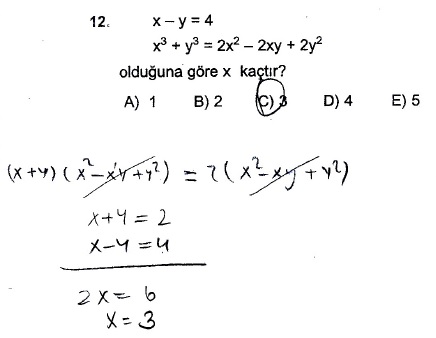 12. x – y = 4
x³ + y³ = 2x² – 2xy + 2y²
olduğuna göre x kaçtır?
A) 1 B) 2 C) 3 D) 4 E) 5
(x + y) (x² – xy + y²) = 2 (x² – xy + y²)
x + y = 2
x – y = 4
2x = 6
x = 3